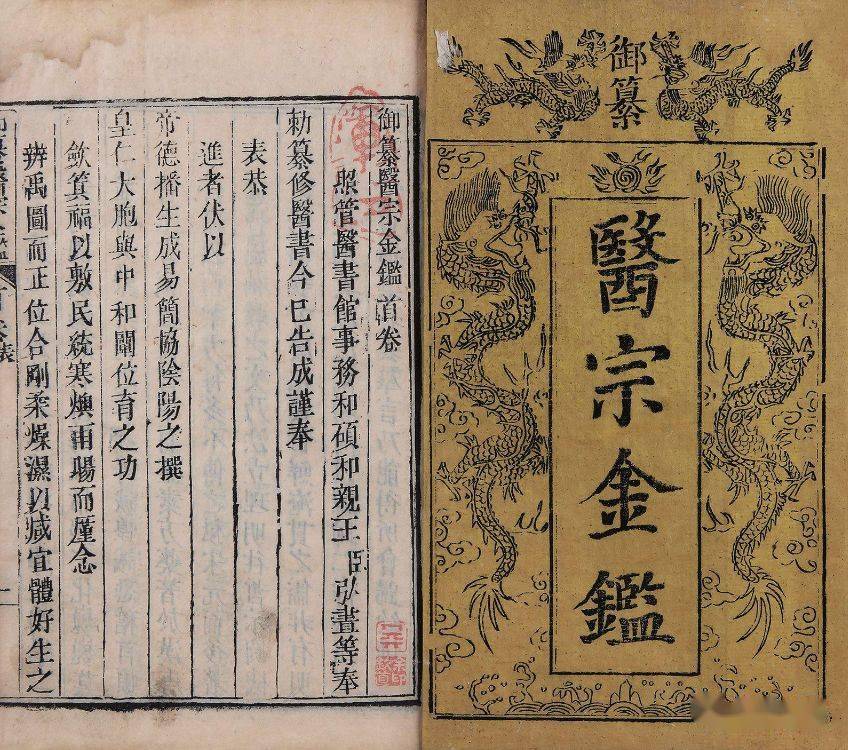 御纂
醫宗金鑑
御纂醫宗金鑑首卷
照管醫書館事務和碩和親王臣弘晝等奉
勅纂修醫書今已告成謹奉
表恭
進者伏以
帝德播生成易簡協陰陽之撰
皇仁大胞與中和闡位育之功
歛箕福以敷民疏寒燠雨暘而厪念
辨禹圖而正位合剛柔燥濕以咸宜體好生之